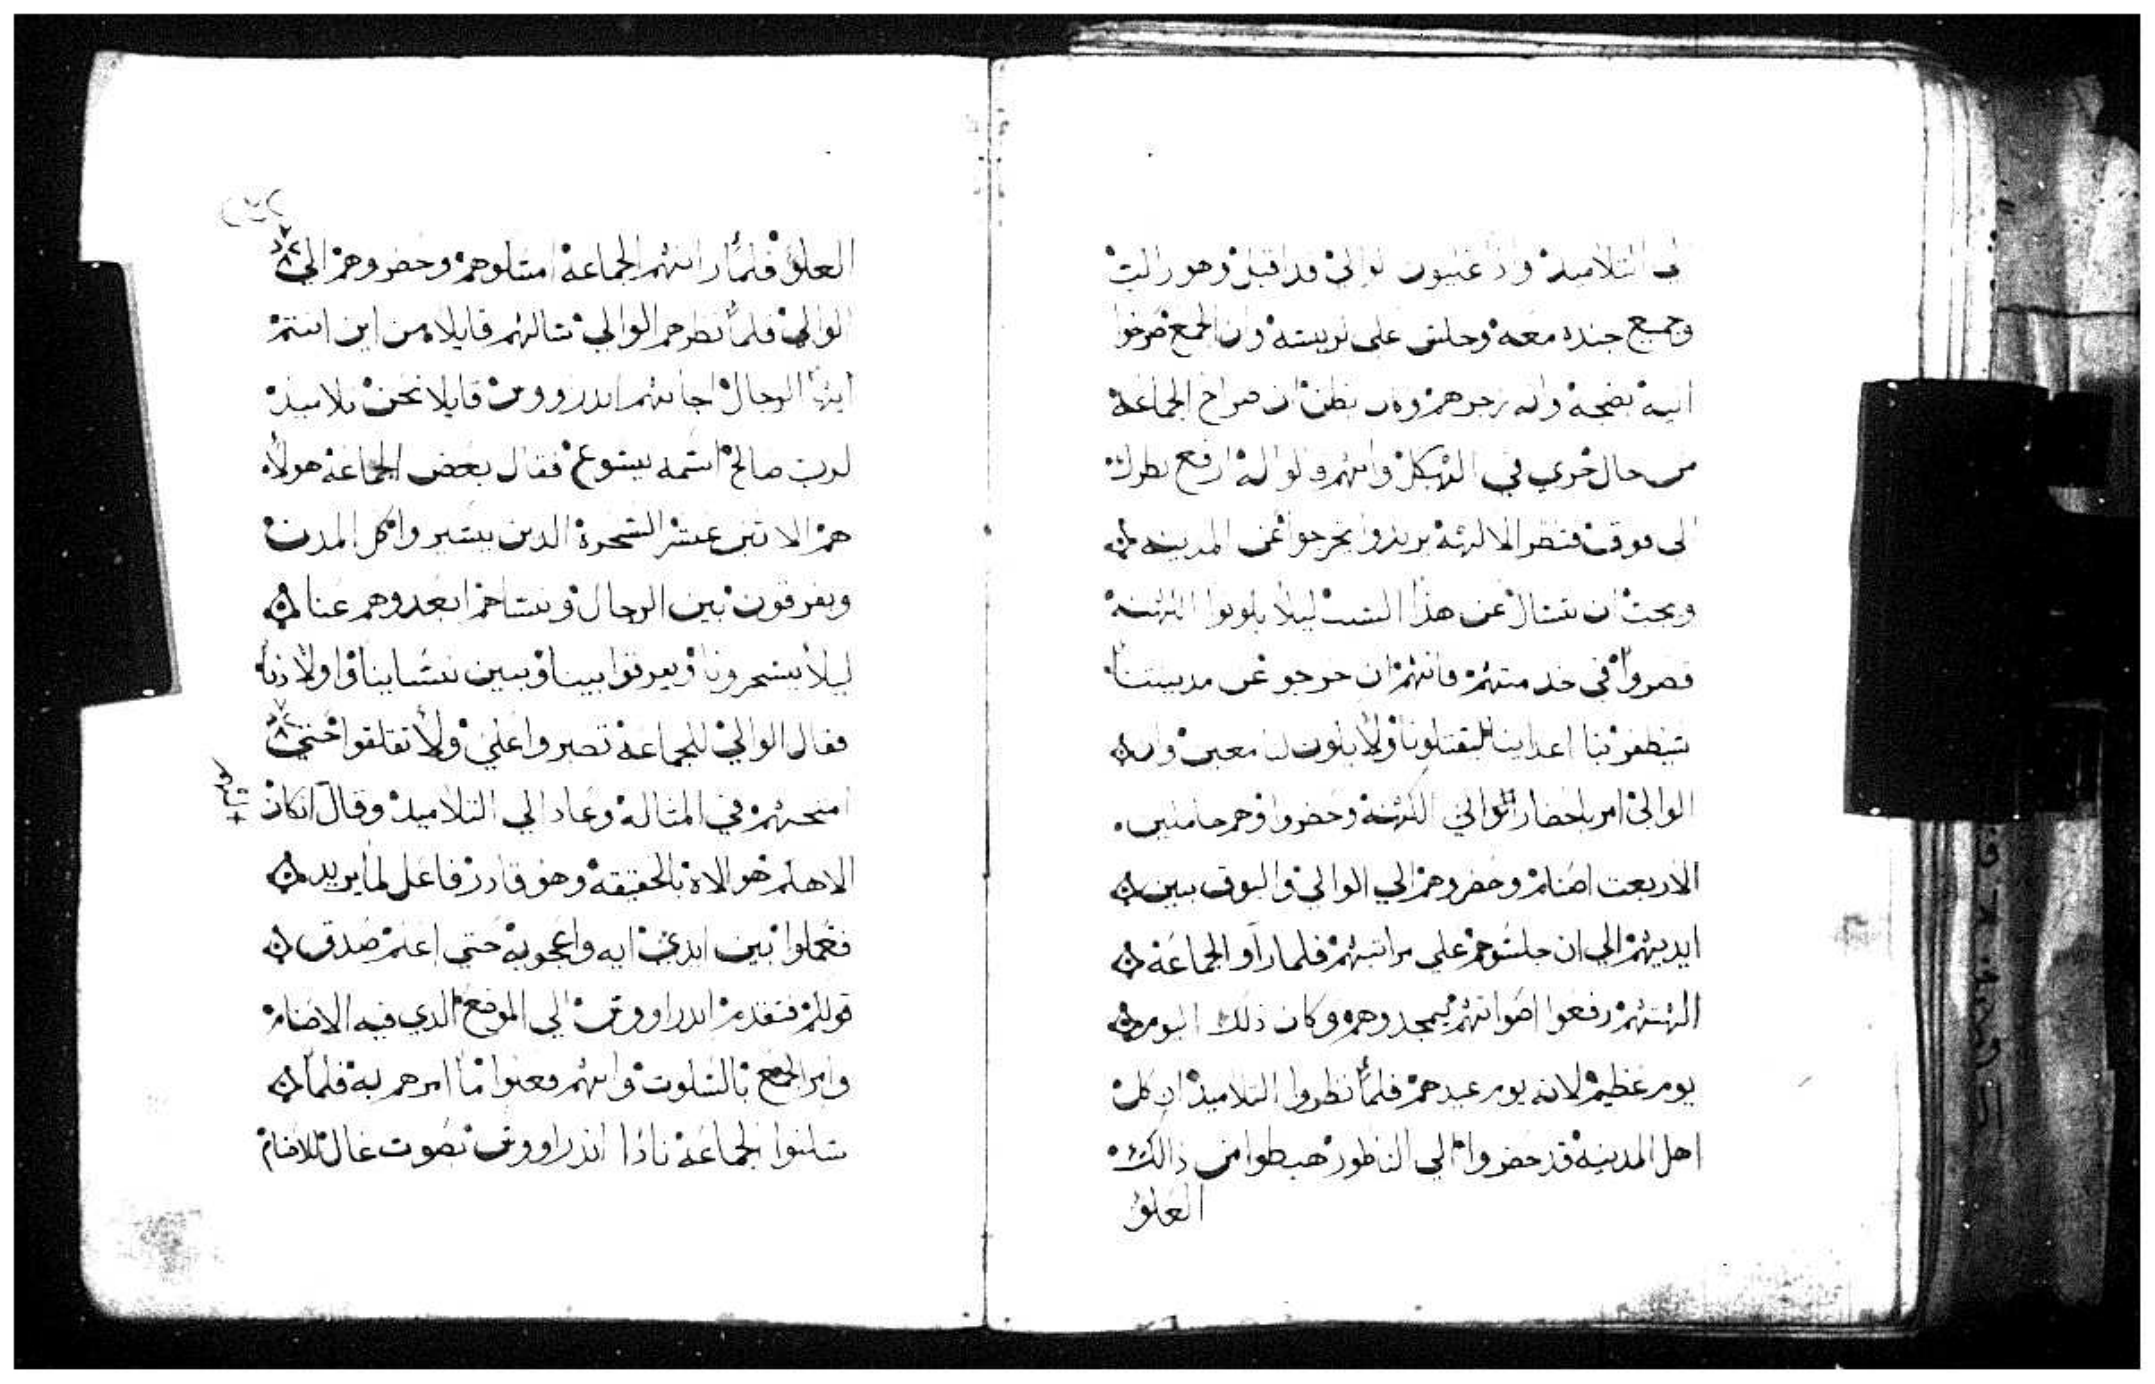 الي التلاميد واذ غليون الوالي قد اقبل وهو راكب
وجميع جنده معه وجلس على كرسيه وان الجمع صرخوا
اليه بضجه وانه زجرهم وكان يظن ان صراخ الجماعة
من حال جري في الهيكل وانهم قالوا له ارفع نظرك
الى فوق فتنظر الالهة يريدوا يخرجوا عن المدينه
ويجب ان تسال عن هذا السبب ليلا يكونوا الكهنه
قصروا في خدمتهم فانهم ان خرجو عن مدينتنا
تنظفر بنا اعداينا ليقتلونا ولا يكون لنا معين وان
الوالي امر باحضار الكهنة وحضروا وهم حاملين
الاربعت اصنام وحضروهم الي الوالي والبوق بين
ايديهم الي ان جلسوهم على مراتبهم فلما راو الجماعة
الهتهم رفعوا اصواتهم ليمجدوهم وكان ذلك اليوم
يوم عظيم لانه يوم عيدهم فلما نظروا التلاميد ان كل
اهل المدينه قد حضروا الي الناظور هبطوا من ذالك
العلو
العلو فلما راتهم الجماعة امسكوهم وحضروهم الي
الوالي فلما نظرهم الوالي سالهم قايلا من اين انتم
ايها الرجال اجابهم اندرووس قايلا نحن تلاميد
لرب صالح اسمه يسوع فقال بعض الجماعة هولا
هم الاتني عشر السحرة الدين يسيروا كل المدن
ويفرقون بين الرجال ونساهم ابعدوهم عنا
ليلا يسحرونا ويفرقوا بيننا وبين نساينا واولادنا
فقال الوالي للجماعة تصبروا علي ولا تقلقوا حتي
امتحنهم في المسالة وعاد الي التلاميد وقال انكان
الاهكم هو الاه بالحقيقه وهو قادر فاعل لما يريد
فعملوا بين ايدي ايه واعجوبة حتي اعلم صدق
قولكم فتقدم اندراووس الي الموضع الدي فيه الاصنام
وامر الجمع بالسكوت وانهم فعلوا ما امرهم به فلما
سكتوا الجماعة نادا اندراووس بصوت عال للاصنام